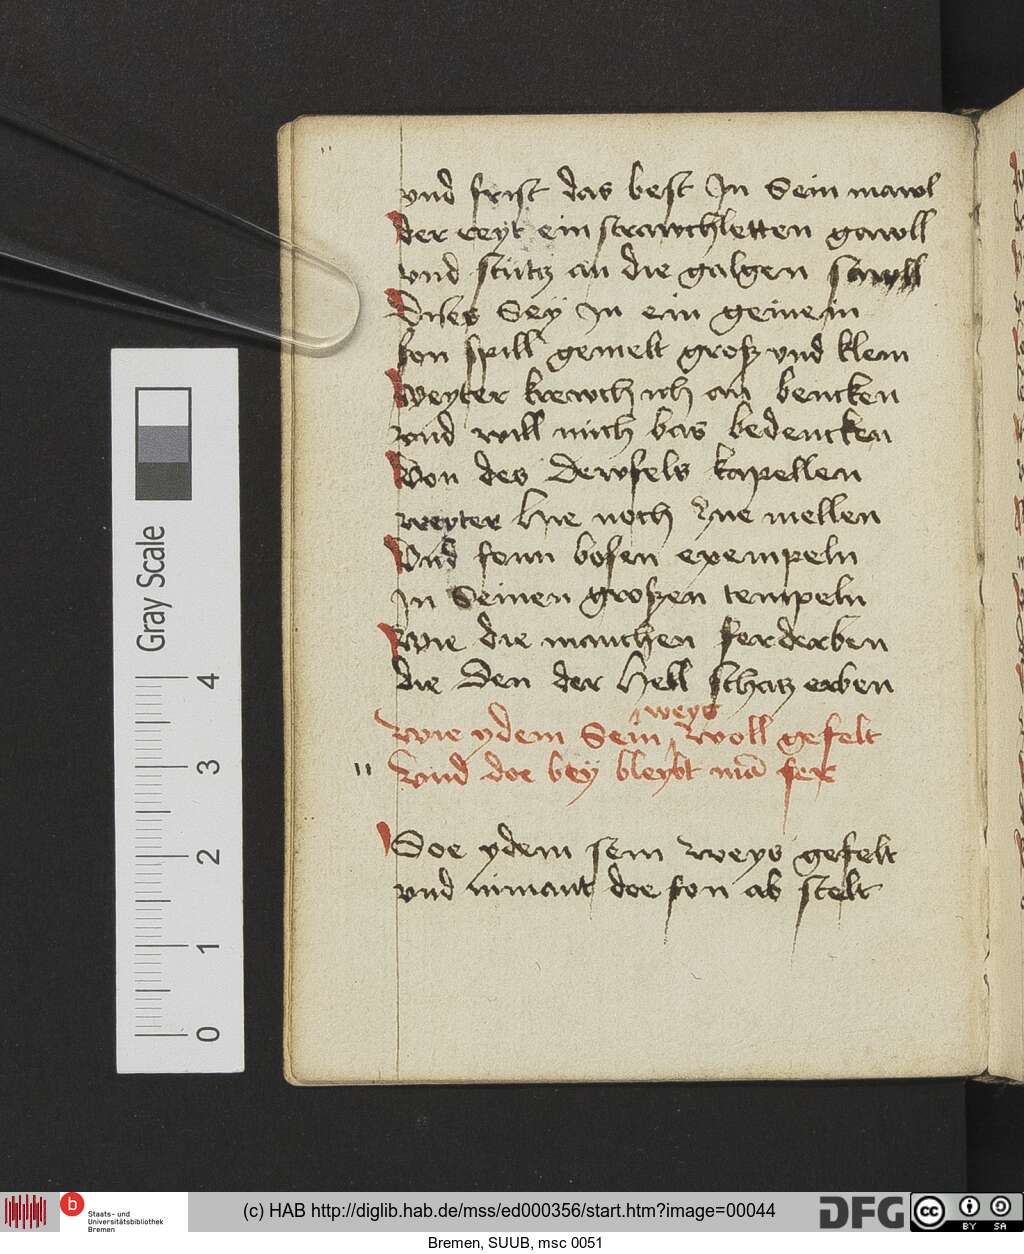 vnd frist das best Jn Sein mawl
der reyt ein strawchletten gawll
vnd stütz an die galgen sawll
Dises Sey Jn ein gemein
fon spill gemelt groß vnd klein
Weyter krewch ich an bencken
vnd will mich bas bedencken
Von des Dewfels kapellen
weyter hie noch zue mellen
Vnd fonn bosen exempeln
Jn Seinen großen tempeln
Wie die manchen ferderben
die Den der hell schatz erben
weys
Wie ydem Sein woll gefelt
Vnd doe bey bleybt mā fer
Soe ydem sein weys gefelt
vnd nimant doe fon ab stelt
Gray Scale
4
3
2
1
0
b
Staats- und
Universitätsbibliothek
Bremen
(c) HAB http://diglib.hab.de/mss/ed000356/start.htm?image=00044
DFG
cc BY SA
Bremen, SUUB, msc 0051